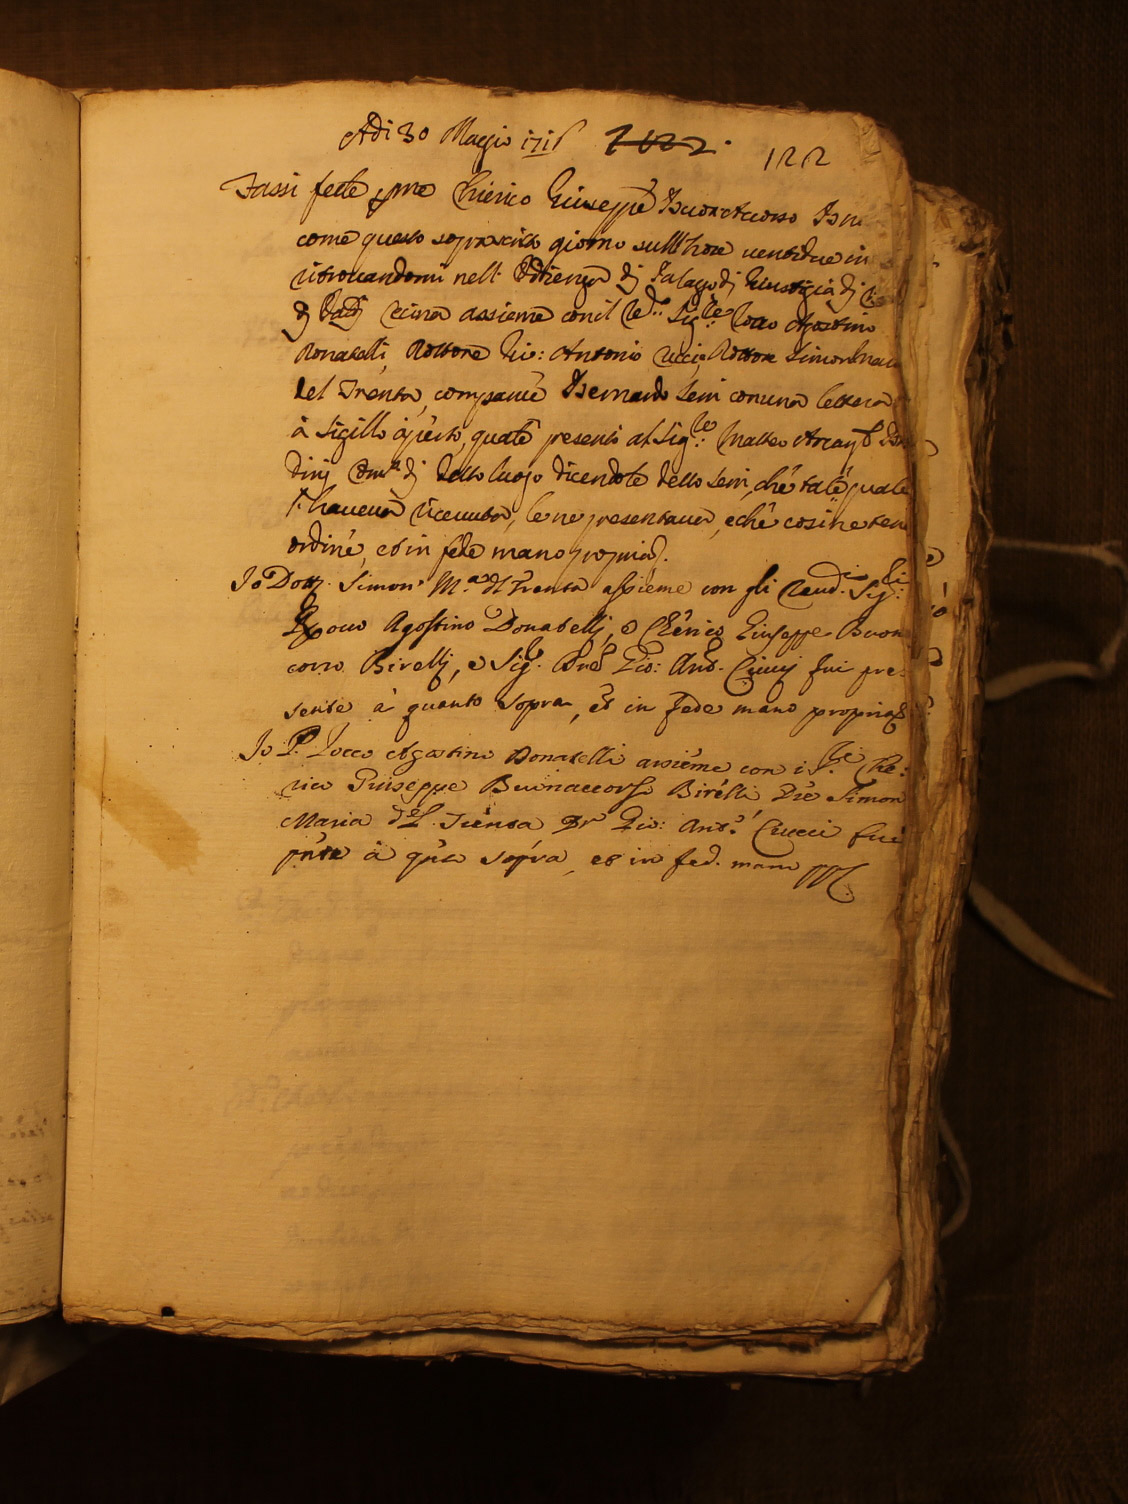 Adi 30 Maggio 1716 122
Fassi fede per me Chierico Giuseppe Buonaccorso
come questo soprascritto giorno sull'hore ventidue in
ritrovandomi nell' Udienza di Palazzo di Giustizia di
di assieme con il Sig.re Rocco Agostino
Donatelli, Dottore Gio: Antonio Ciucci, Dottore Simon Maria
del Trenta, comparve Bernardo Seri con una lettera
à sigillo aperto, quale presentò al Sig.re Matteo
di detto luogo dicendole detto Seri, che tale quale
l'haveva ricevuta, le ne presentava, e che così ne teneva
ordine, et in fede mano propria.
Io Dott. Simon M.a del Trenta assieme con gli Reud. Sig.li
Rocco Agostino Donatelli, e Chierico Giuseppe Buonac
corso Birelli, e Sig. Gio: Ant. Ciucci fui pre-
sente à quanto sopra, et in fede mano propria
Io D. Rocco Agostino Donatelli assieme con i S.ri Chie:
rico Giuseppe Buonaccorso Birelli Simon
Maria del Trenta Dr Gio: Ant.o Ciucci fui
pnte à qnto sopra, et in fed. mano